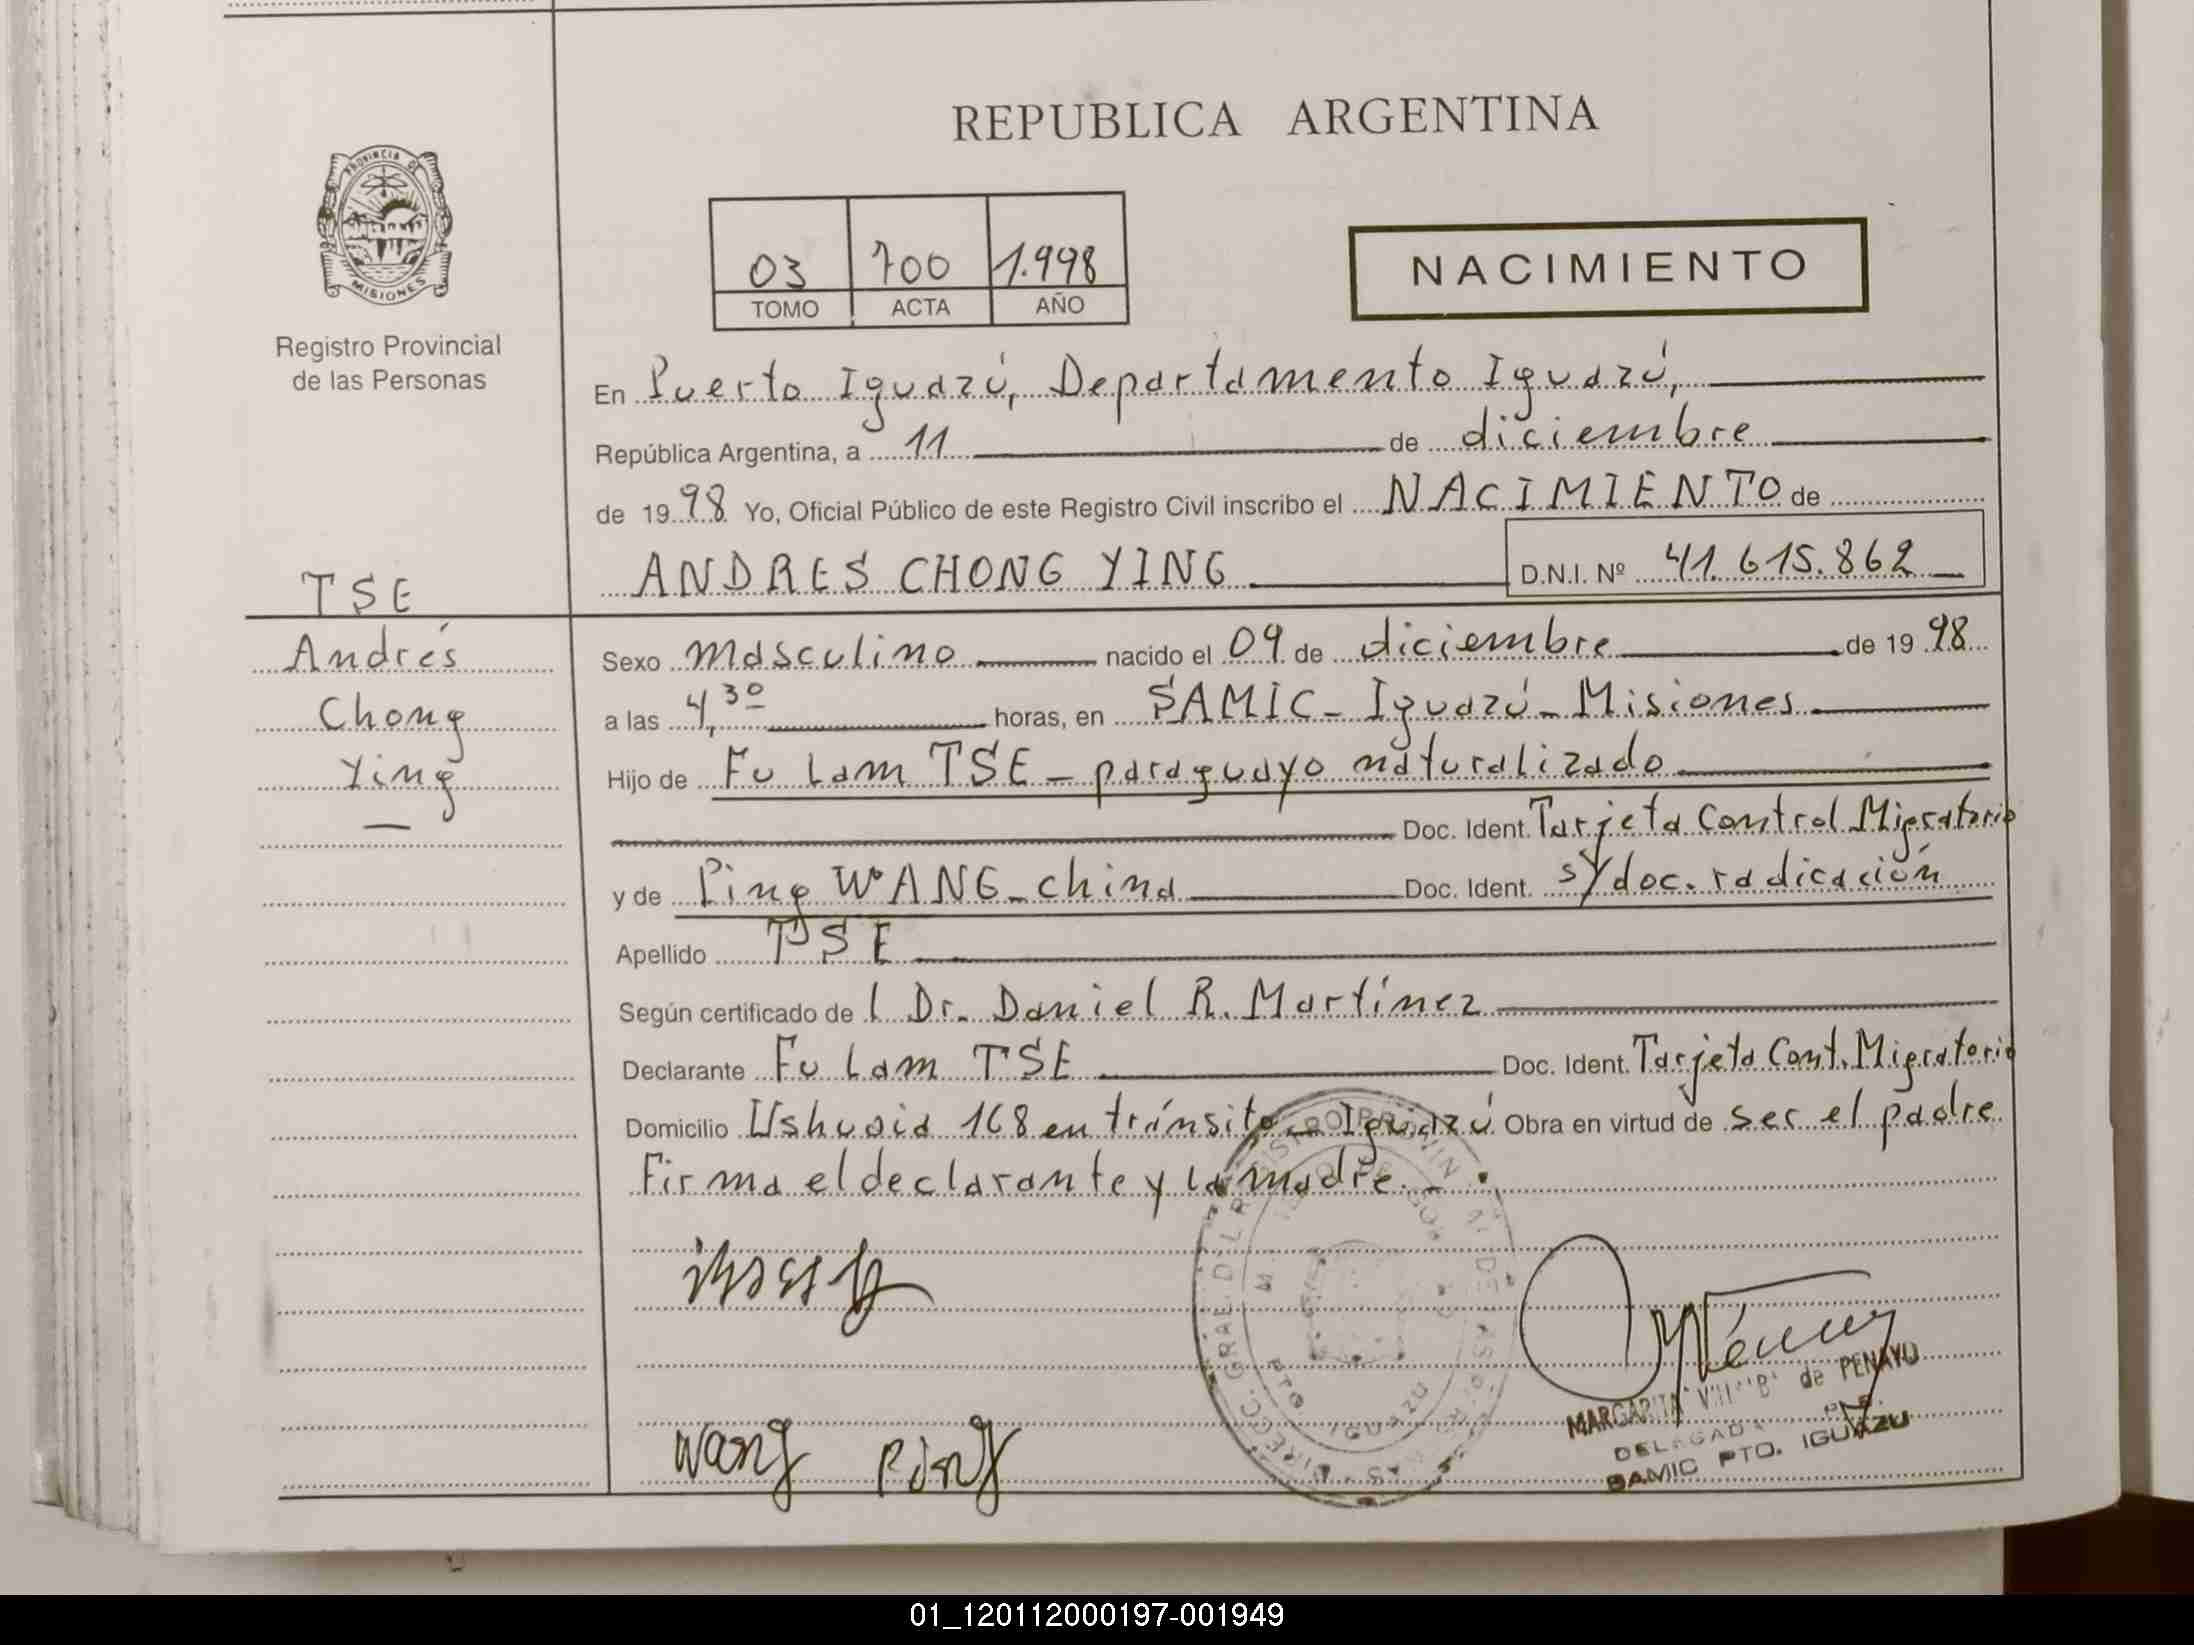 REPUBLICA ARGENTINA
PROVINCIA DE
MISIONES
Registro Provincial
de las Personas
03 700 1.998
TOMO ACTA AÑO
NACIMIENTO
En Puerto Iguazú, Departamento Iguazú,
República Argentina, a 11 de diciembre
de 1998 Yo, Oficial Público de este Registro Civil inscribo el NACIMIENTO de
ANDRES CHONG YING D.N.I. Nº 41.615.862
TSE
Andrés
Chong
Ying
Sexo masculino nacido el 09 de diciembre de 1998
a las 4,30 horas, en SAMIC - Iguazú - Misiones
Hijo de Fu Lam TSE - paraguayo naturalizado
Doc. Ident. Tarjeta Control Migratorio
y de Ping WANG - china Doc. Ident. s/doc. radicación
Apellido TSE
Según certificado de l Dr. Daniel R. Martínez
Declarante Fu Lam TSE Doc. Ident. Tarjeta Cont. Migratorio
Domicilio Ushuaia 168 en tránsito - Iguazú Obra en virtud de ser el padre
Firma el declarante y la madre. -
Wang Ping
MARGARITA de PENAYO
DELEGADA
SAMIC PTO. IGUAZU
01_120112000197-001949